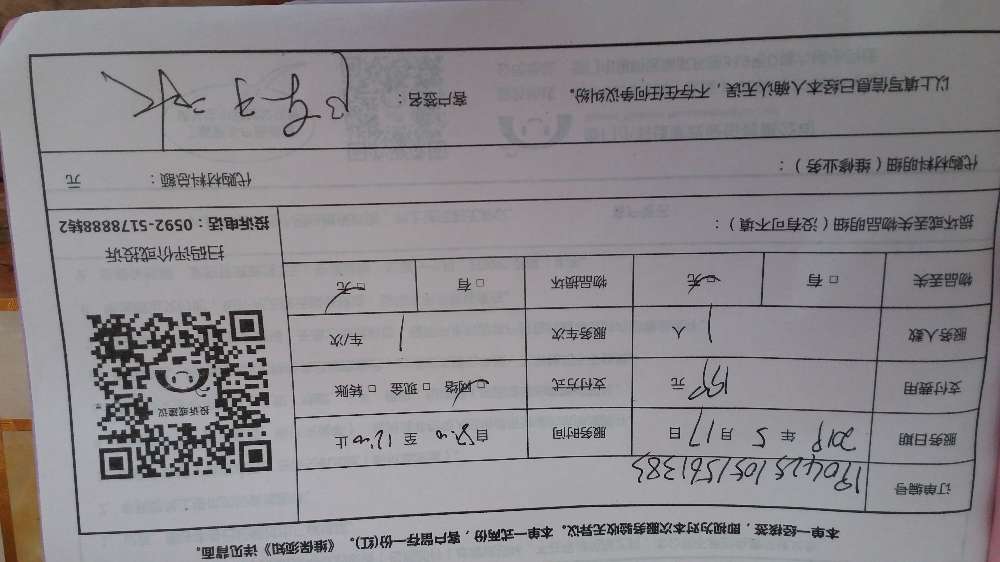 本单一经接签，即视为对本次服务验收无异议。本单一式两份，客户留存一份(红)。《维保须知》详见背面。
订单编号 190425105156138
服务日期 2019 年 5 月 17 日 服务时间 自 至 12:00 止
支付费用 元 支付方式 □ 网络 □ 现金 □ 转账
服务人数 1 人 服务车次 1 车/次
物品丢失 □ 有 □ 无 物品损坏 □ 有 □ 无
投诉或建议
扫码评价或投诉
投诉电话：0592-5178888转2
损坏或丢失物品明细（没有可不填）：
代购材料明细（维修业务）： 代购材料总额： 元
以上填写信息已经本人确认无误，不存在任何争议纠纷。 客户签名：